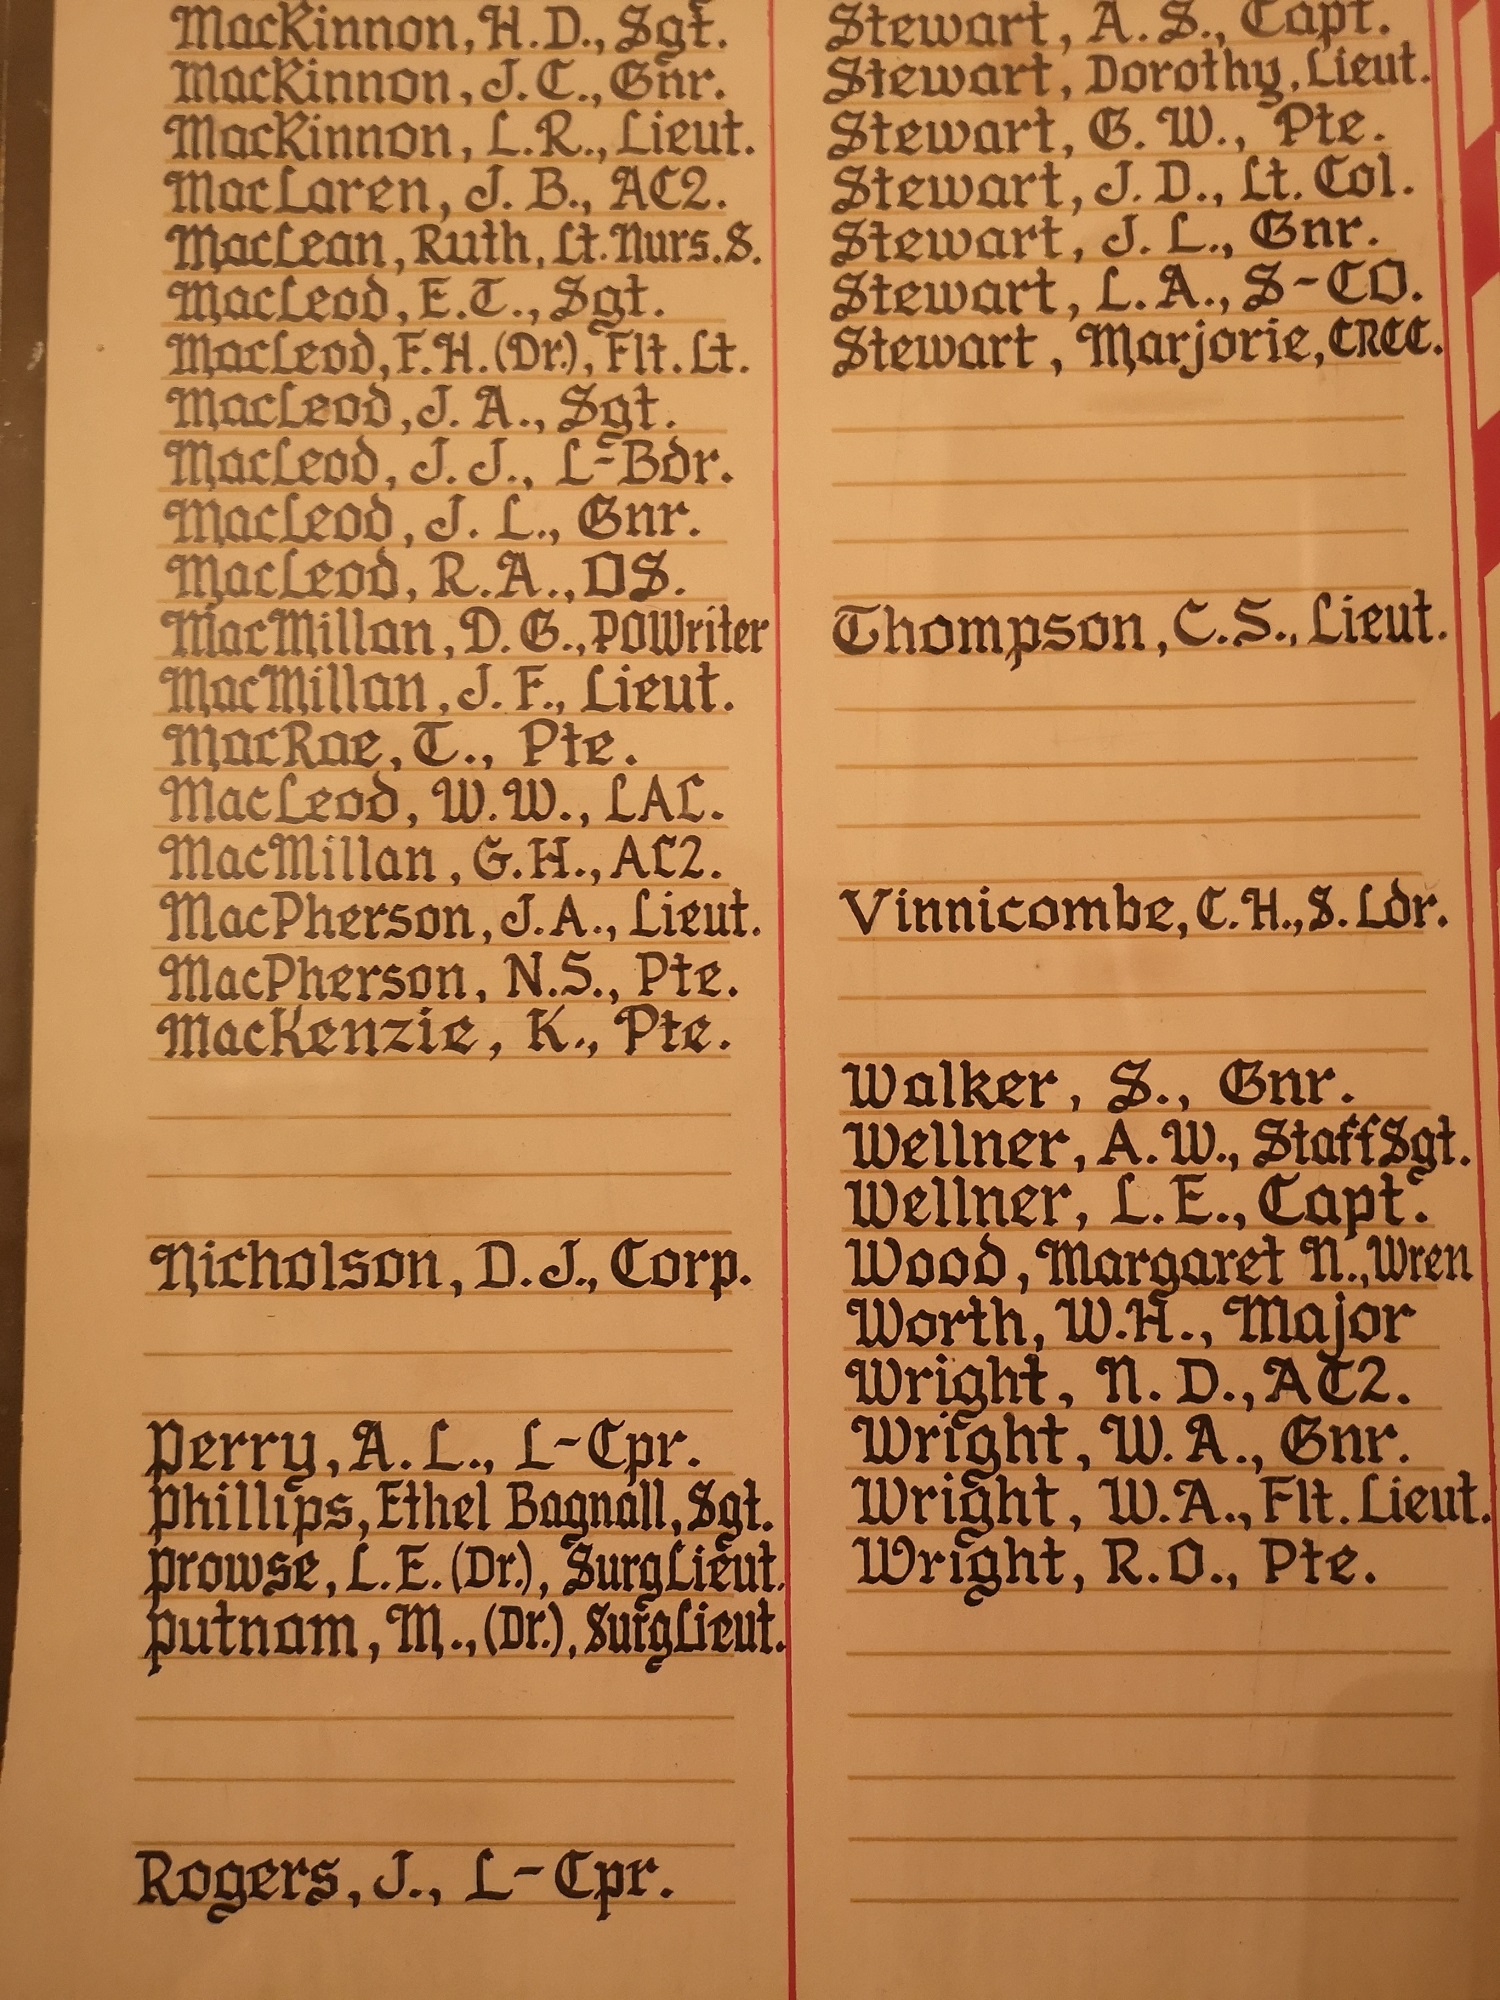 MacKinnon, H.D., Sgt.
MacKinnon, J.C., Gnr.
MacKinnon, L.R., Lieut.
MacLaren, J. B., AC2.
MacLean, Ruth, Lt. Nurs. S.
MacLeod, E.T., Sgt.
MacLeod, F.H. (Dr.), Flt. Lt.
MacLeod, J. A., Sgt.
MacLeod, J. J., L-Bdr.
MacLeod, J. L., Gnr.
MacLeod, R.A., OS.
MacMillan, D. G., POWriter
MacMillan, J. F., Lieut.
MacRae, T., Pte.
MacLeod, W.W., LAC.
MacMillan, G.H., AC2.
MacPherson, J.A., Lieut.
MacPherson, N.S., Pte.
MacKenzie, K., Pte.
Nicholson, D.J., Corp.
Perry, A. L., L-Cpr.
Phillips, Ethel Bagnall, Sgt.
Prowse, L.E. (Dr.), SurgLieut.
Putnam, M., (Dr.), SurgLieut.
Rogers, J., L-Cpr.
Stewart, A. S., Capt.
Stewart, Dorothy, Lieut.
Stewart, G. W., Pte.
Stewart, J. D., Lt. Col.
Stewart, J. L., Gnr.
Stewart, L. A., S-CO.
Stewart, Marjorie, CRCC.
Thompson, C.S., Lieut.
Vinnicombe, C.H., S. Ldr.
Walker, S., Gnr.
Wellner, A.W., StaffSgt.
Wellner, L.E., Capt.
Wood, Margaret N., Wren
Worth, W.H., Major
Wright, N. D., AC2.
Wright, W. A., Gnr.
Wright, W.A., Flt. Lieut.
Wright, R.O., Pte.